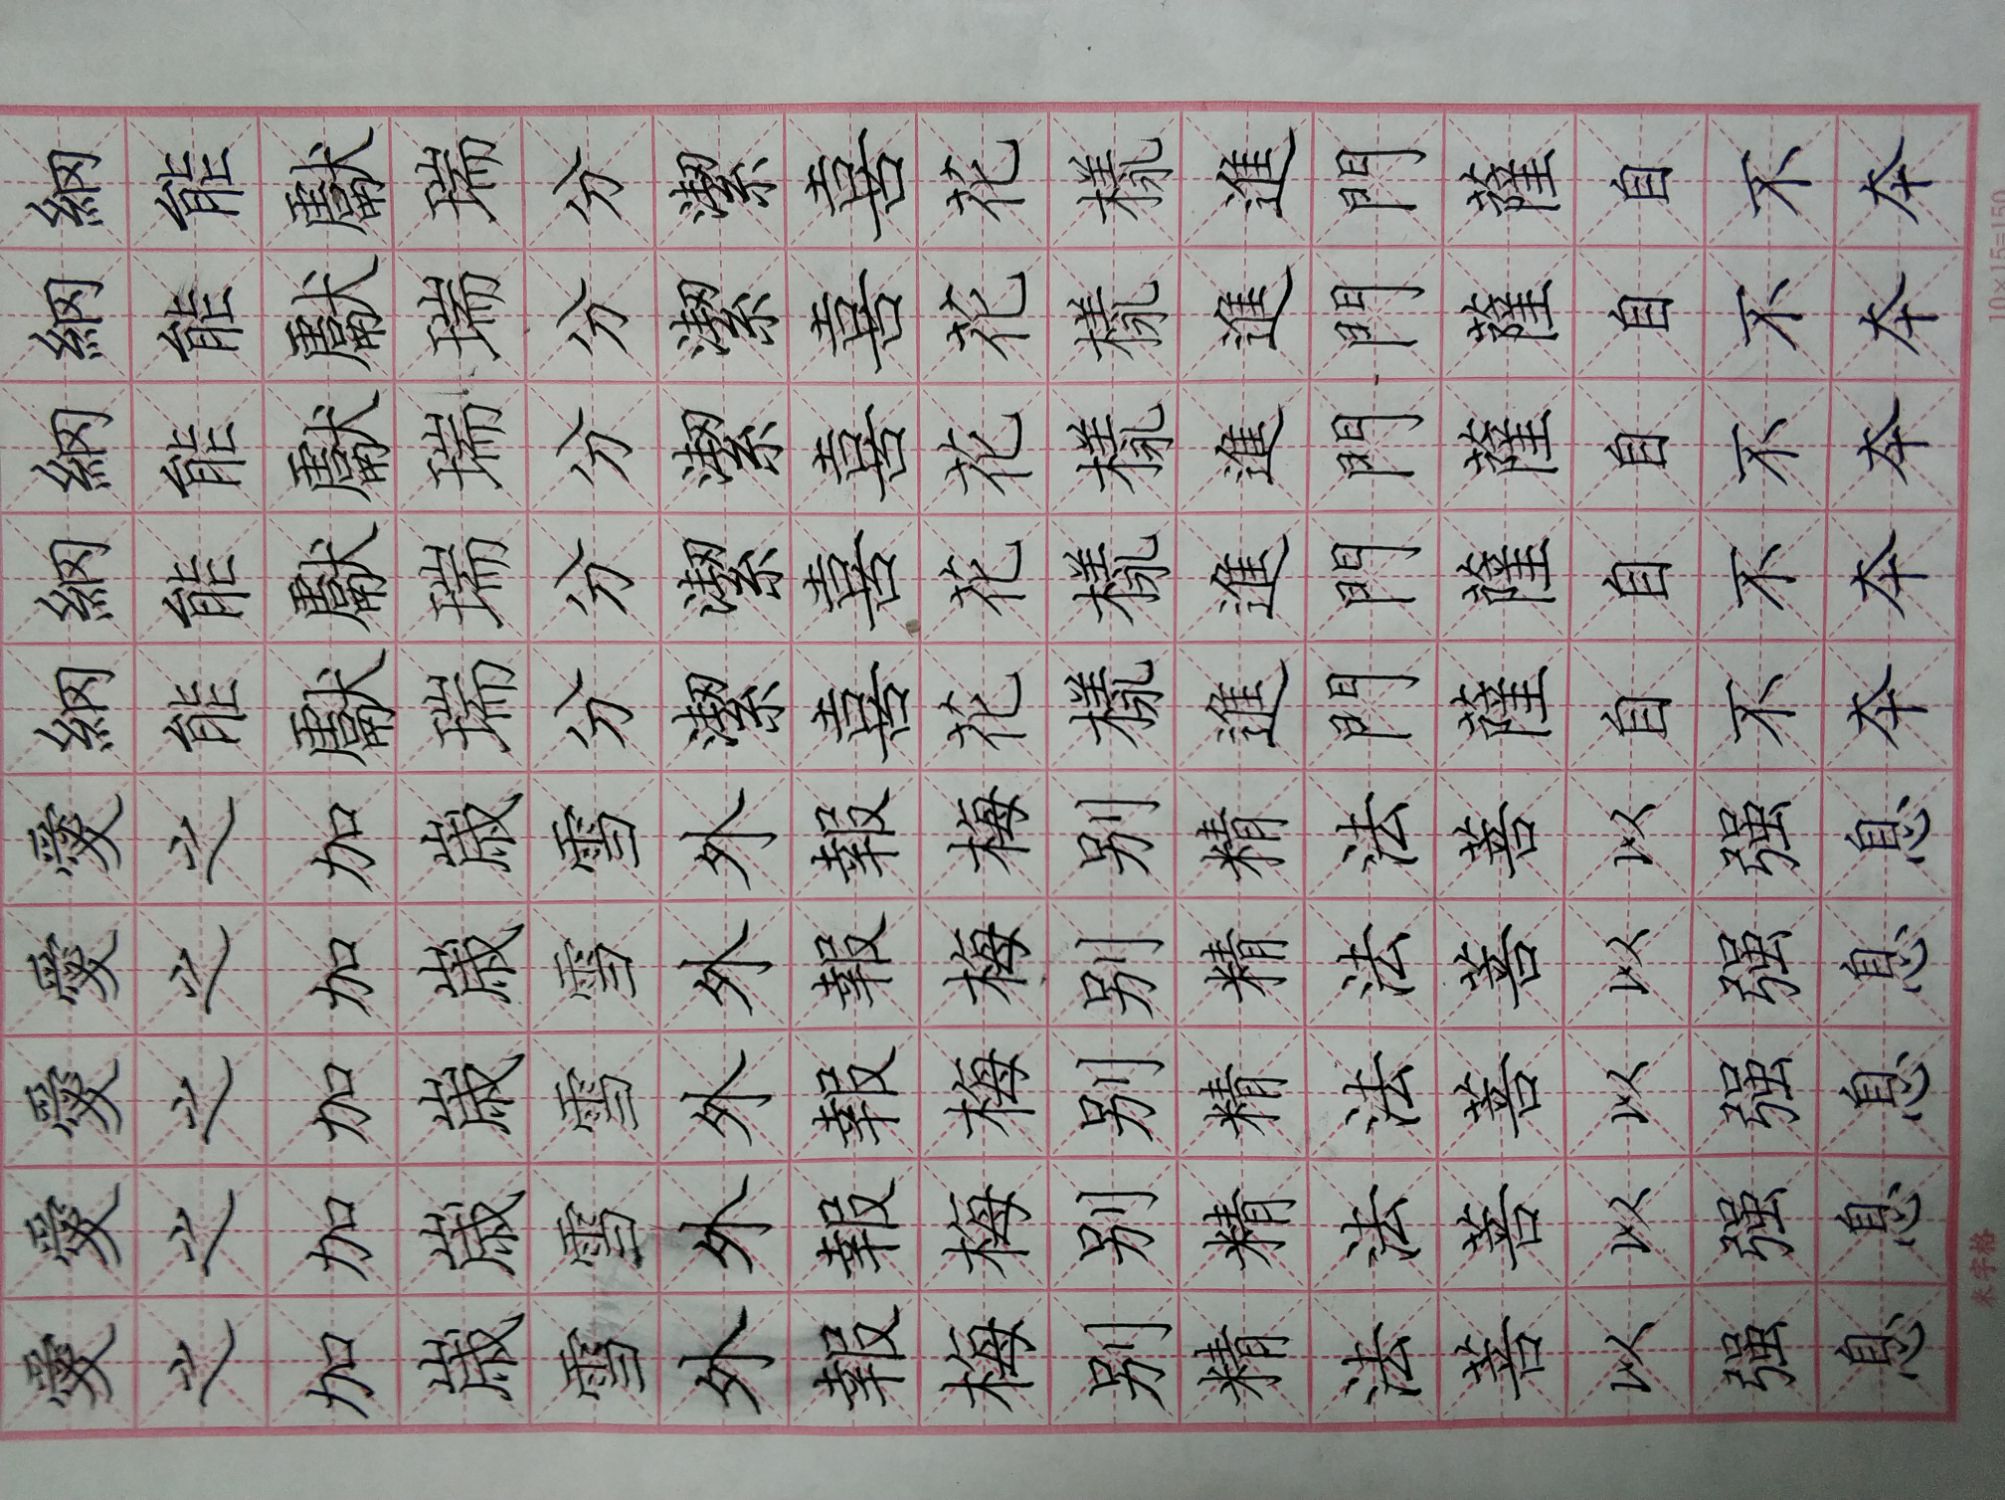 愛愛愛愛愛網網網網網
之之之之之能能能能能
加加加加加獻獻獻獻獻
歲歲歲歲歲瑞瑞瑞瑞瑞
雪雪雪雪雪分分分分分
外外外外外潔潔潔潔潔
報報報報報喜喜喜喜喜
梅梅梅梅梅花花花花花
別別別別別樣樣樣樣樣
精精精精精進進進進進
法法法法法門門門門門
菩菩菩菩菩薩薩薩薩薩
以以以以以自自自自自
强强强强强不不不不不
息息息息息夲夲夲夲夲
米字格 10×15=150